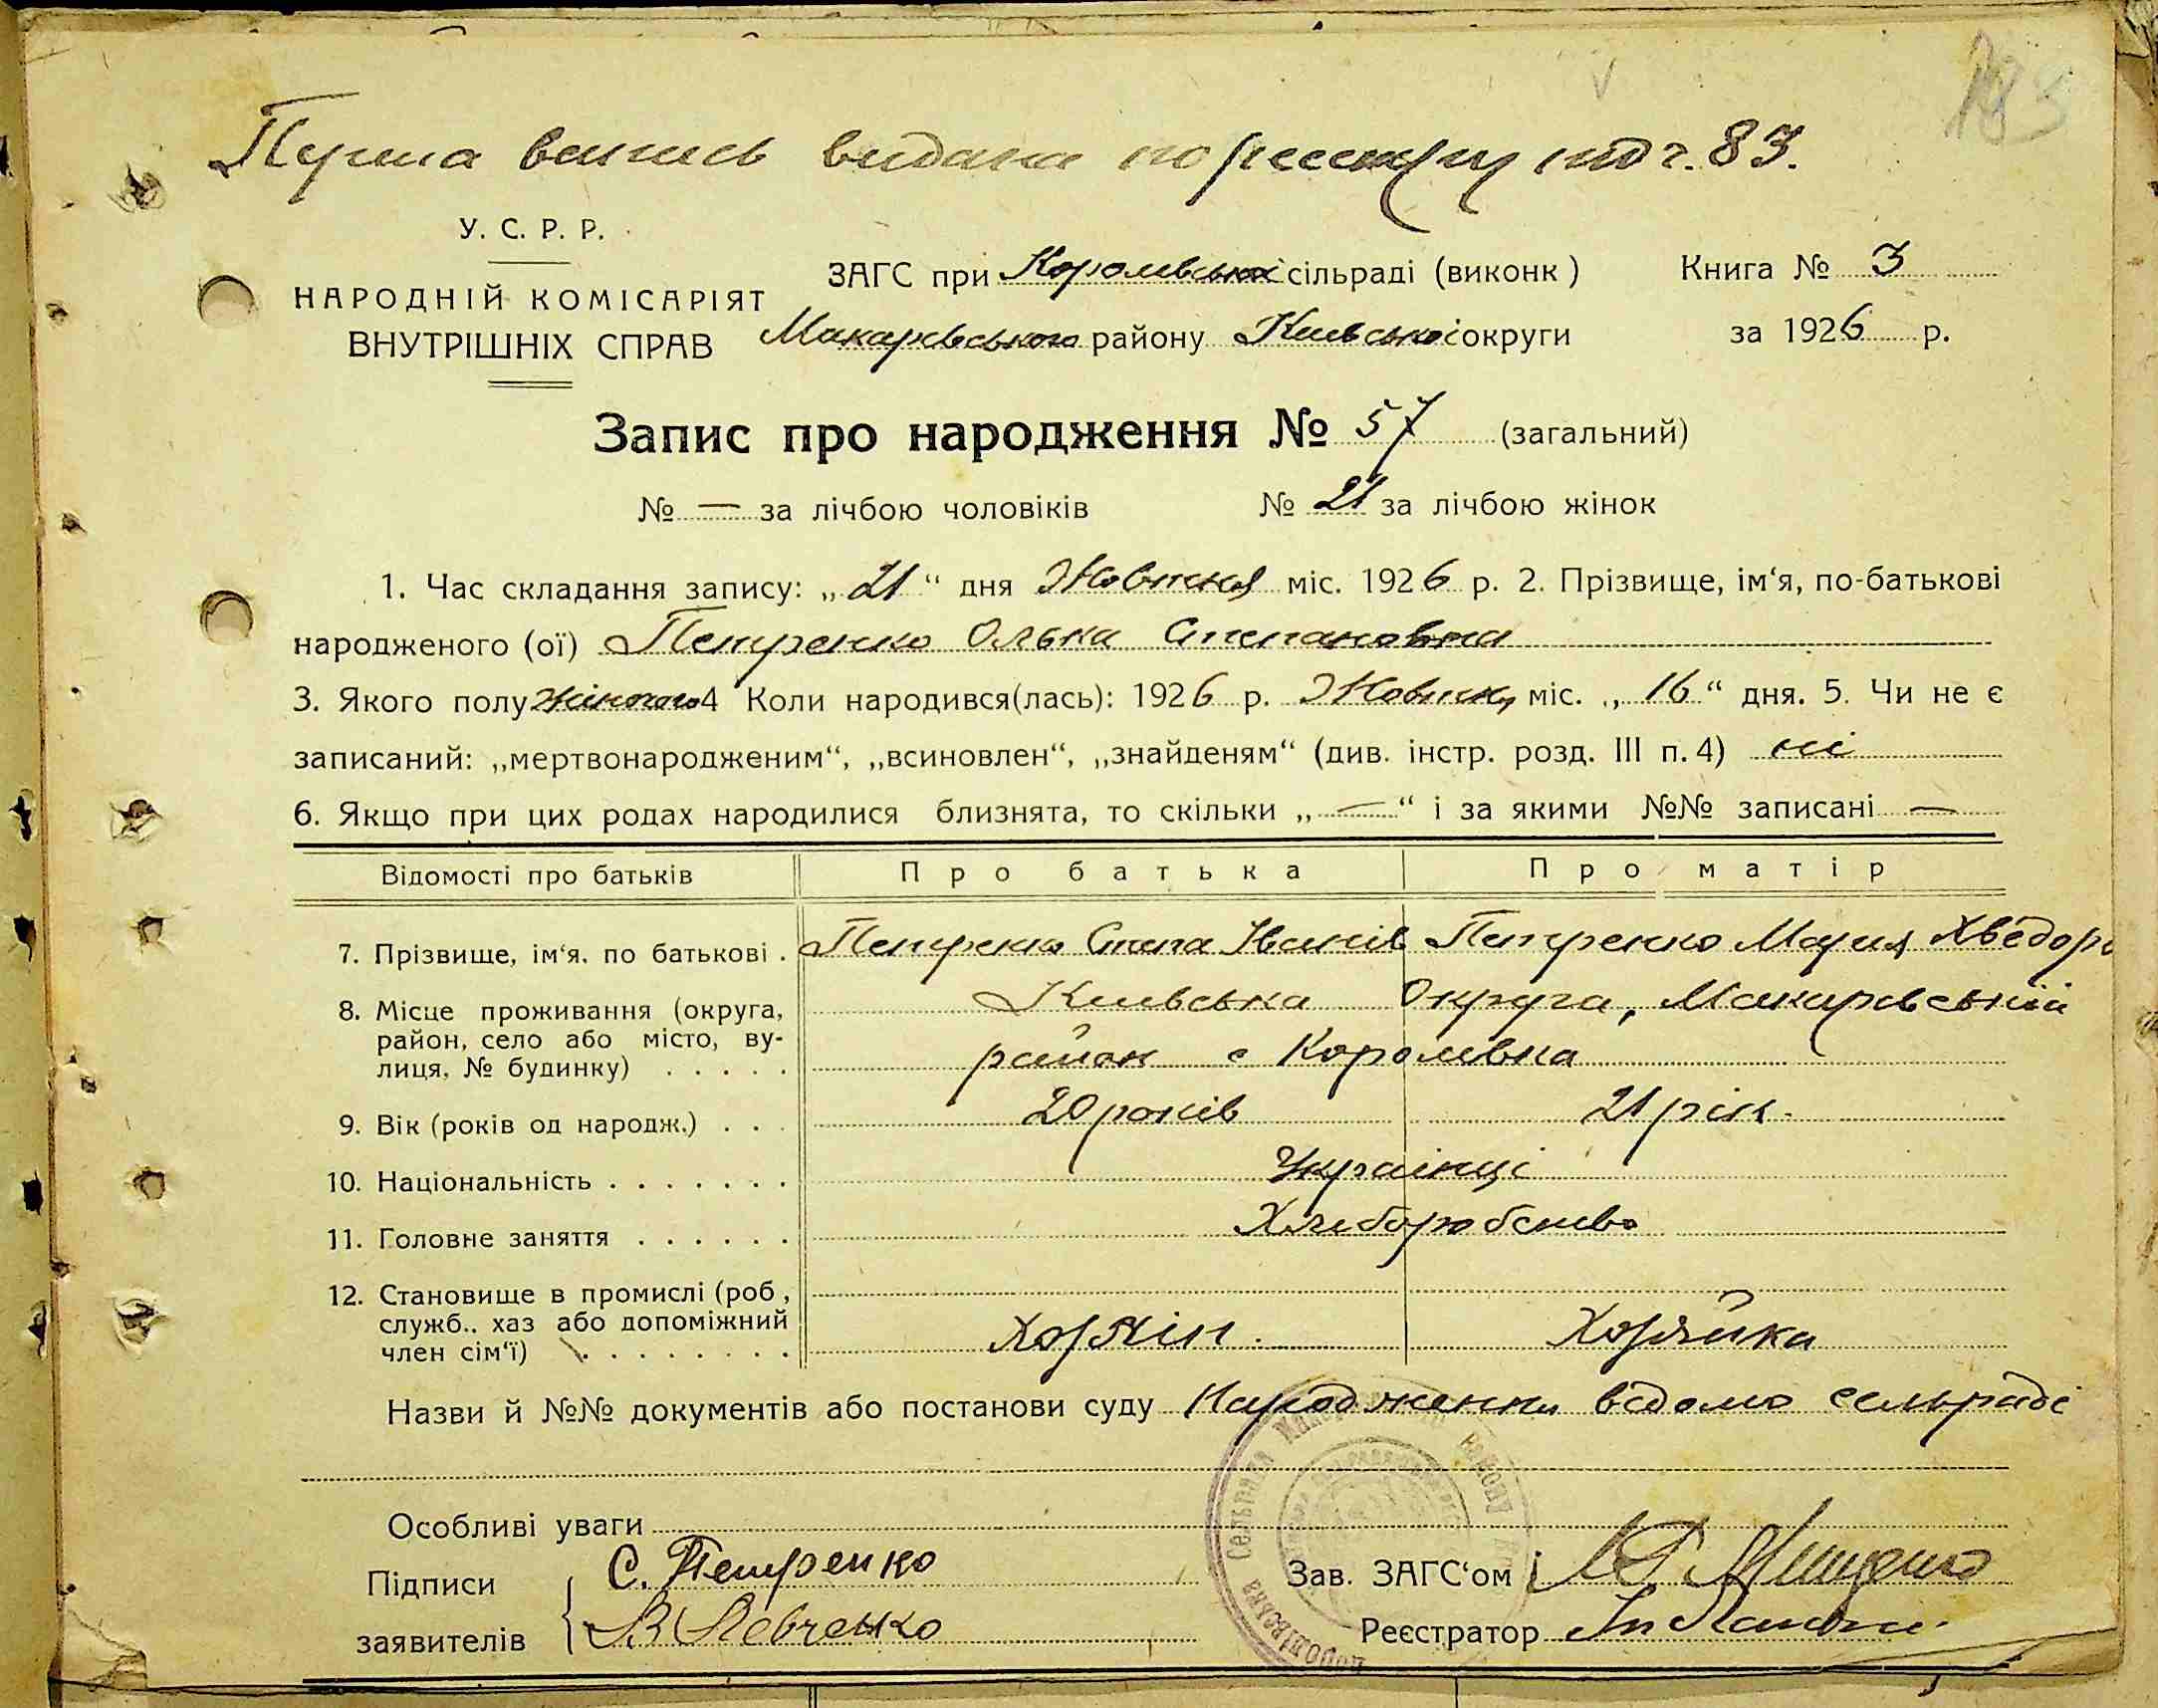 183
Перша випись видана по реестру під ч. 83.
У. С. Р. Р.
НАРОДНІЙ КОМІСАРІЯТ
ВНУТРІШНІХ СПРАВ
ЗАГС при Королівській сільраді (виконк )
Макарівського району Київської округи
Книга № 3
за 1926 р.
Запис про народження № 57 (загальний)
№ — за лічбою чоловіків № 21 за лічбою жінок
1. Час складання запису: „ 21 “ дня Жовтня міс. 1926 р. 2. Прізвище, ім‘я, по-батькові
народженого (ої) Петренко Олька Степановна
3. Якого полу жіночого 4 Коли народився(лась): 1926 р. Жовтня міс. „ 16 “ дня. 5. Чи не є
записаний: „мертвонародженим“, „всиновлен“, „знайденям“ (див. інстр. розд. III п. 4) ні
6. Якщо при цих родах народилися близнята, то скільки „ — “ і за якими №№ записані —
Відомості про батьків Про батька Про матір
7. Прізвище, ім‘я, по батькові . Петренко Степа Іванів Петренко Мария Хведор
8. Місце проживання (округа, Київська Округа, Макарівський
район, село або місто, ву- район с Королівка
лиця, № будинку) . . . . .
9. Вік (років од народж.) . . . 20 років 21 рік.
10. Національність . . . . . . . Українці
11. Головне заняття . . . . . . Хліборобство
12. Становище в промислі (роб ,
служб.. хаз або допоміжний Хозяїн. Хозяйка
член сім‘ї) . . . . . . . .
Назви й №№ документів або постанови суду Народження відомо сельраді
Особливі уваги
Підписи С. Петренко
заявителів В Левченко
Зав. ЗАГС‘ом
Реєстратор